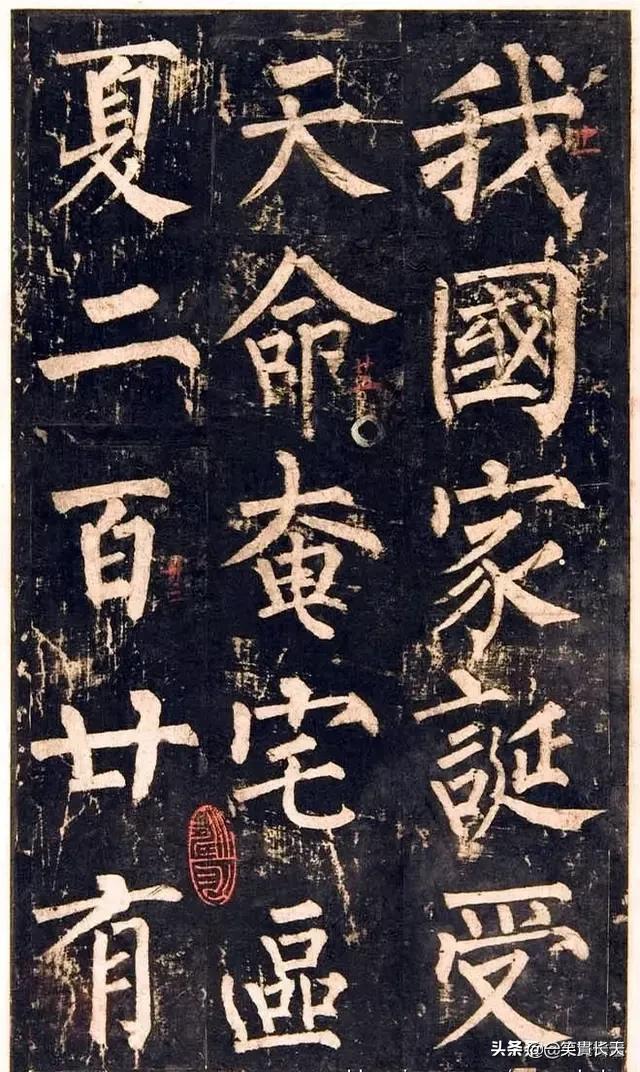 我國家誕受
天命奄宅區
夏二百廿有
头条@笑贯长天